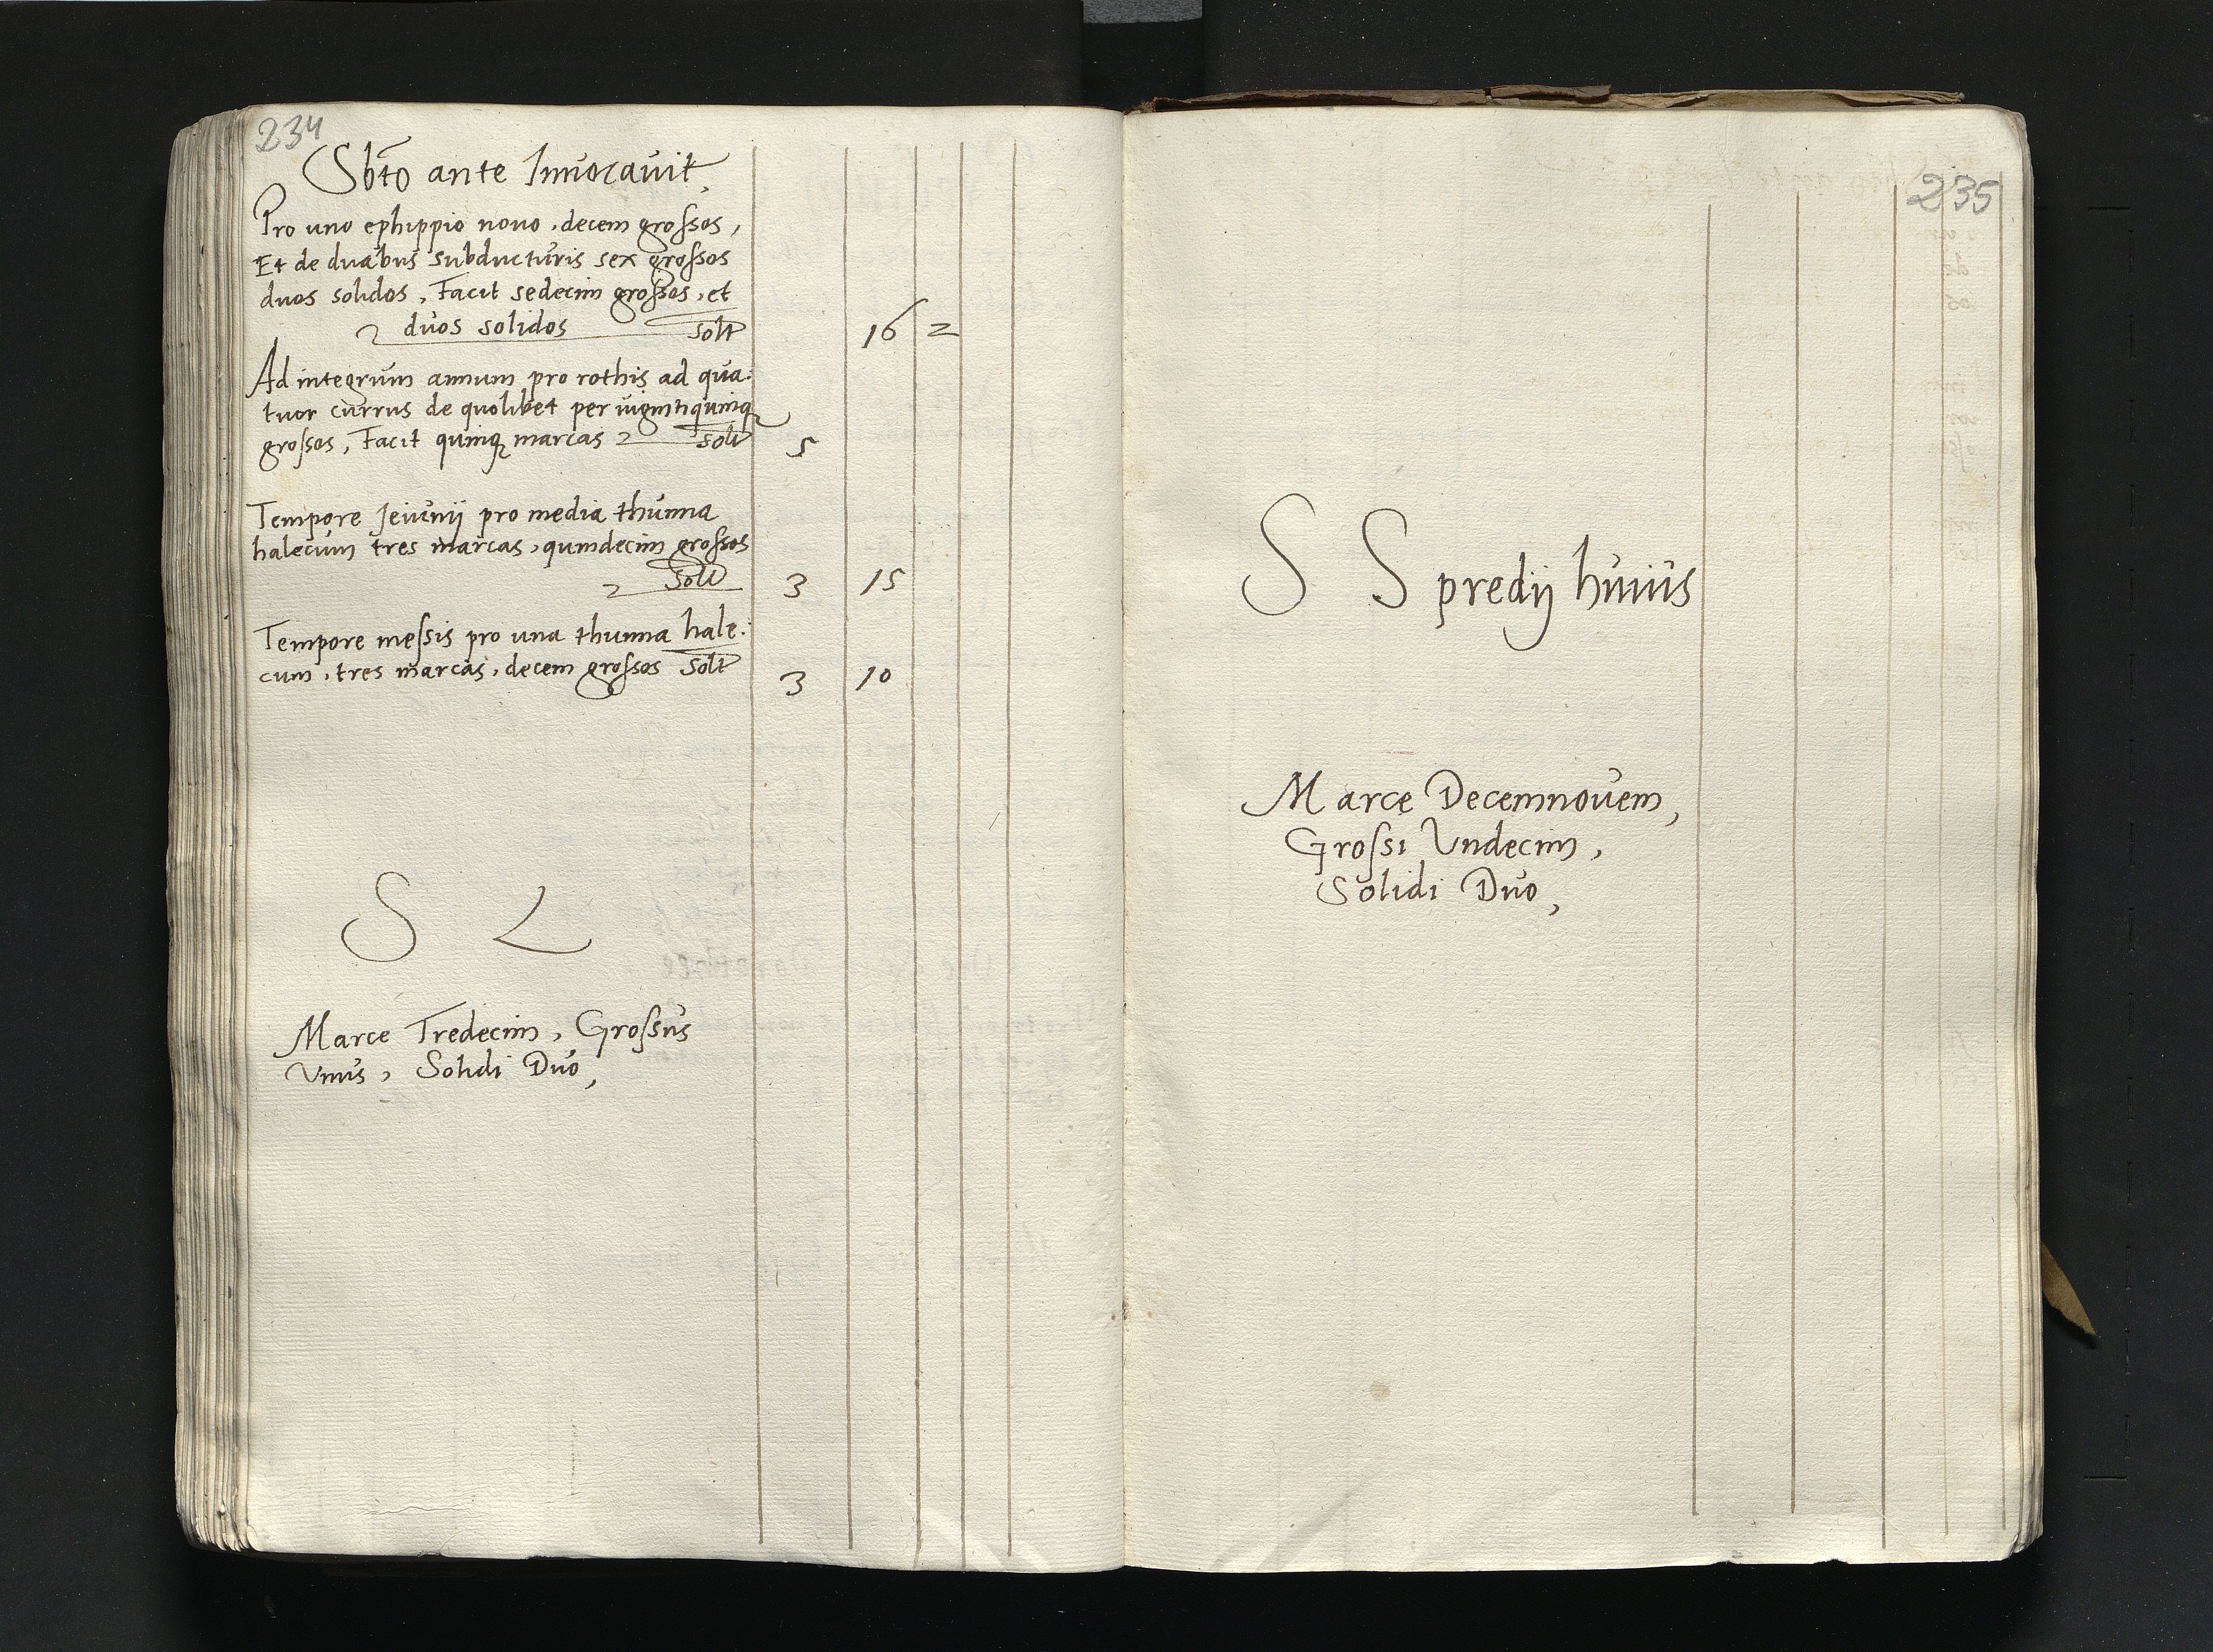 234
Sbto ante Invocavit,
Pro uno ephippio novo, decem grossos,
Et de duabus subducturis sex grossos
duos solidos, Facit sedecim grossos, et
duos solidos solt 16 2
Ad integrum annum pro rothis ad qua:
tuor currus de quolibet per viginti quinq
grossos, Facit quinq marcas solt 5
Tempore Jeiunij pro media thunna
halecum tres marcas, quindecim grossos
solt 3 15
Tempore messis pro una thunna hale:
cum, tres marcas, decem grossos solt 3 10
S L
Marce Tredecim, Grossus
Unus, Solidi Duo,
235
S S predij huius
Marce Decemnovem,
Grossi Undecim,
Solidi Duo,